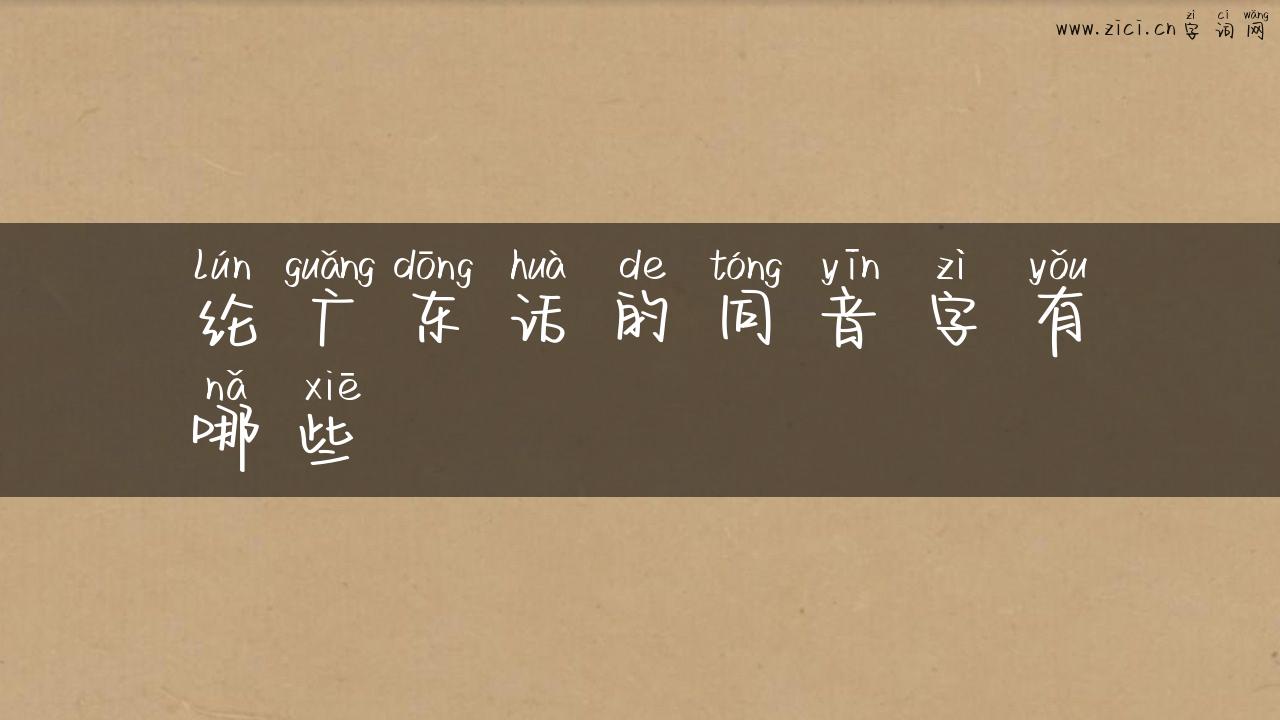 zì cí wǎng
www.zici.cn 字 词 网
lún guǎng dōng huà de tóng yīn zì yǒu
纶 广 东 话 的 同 音 字 有
nǎ xiē
哪 些